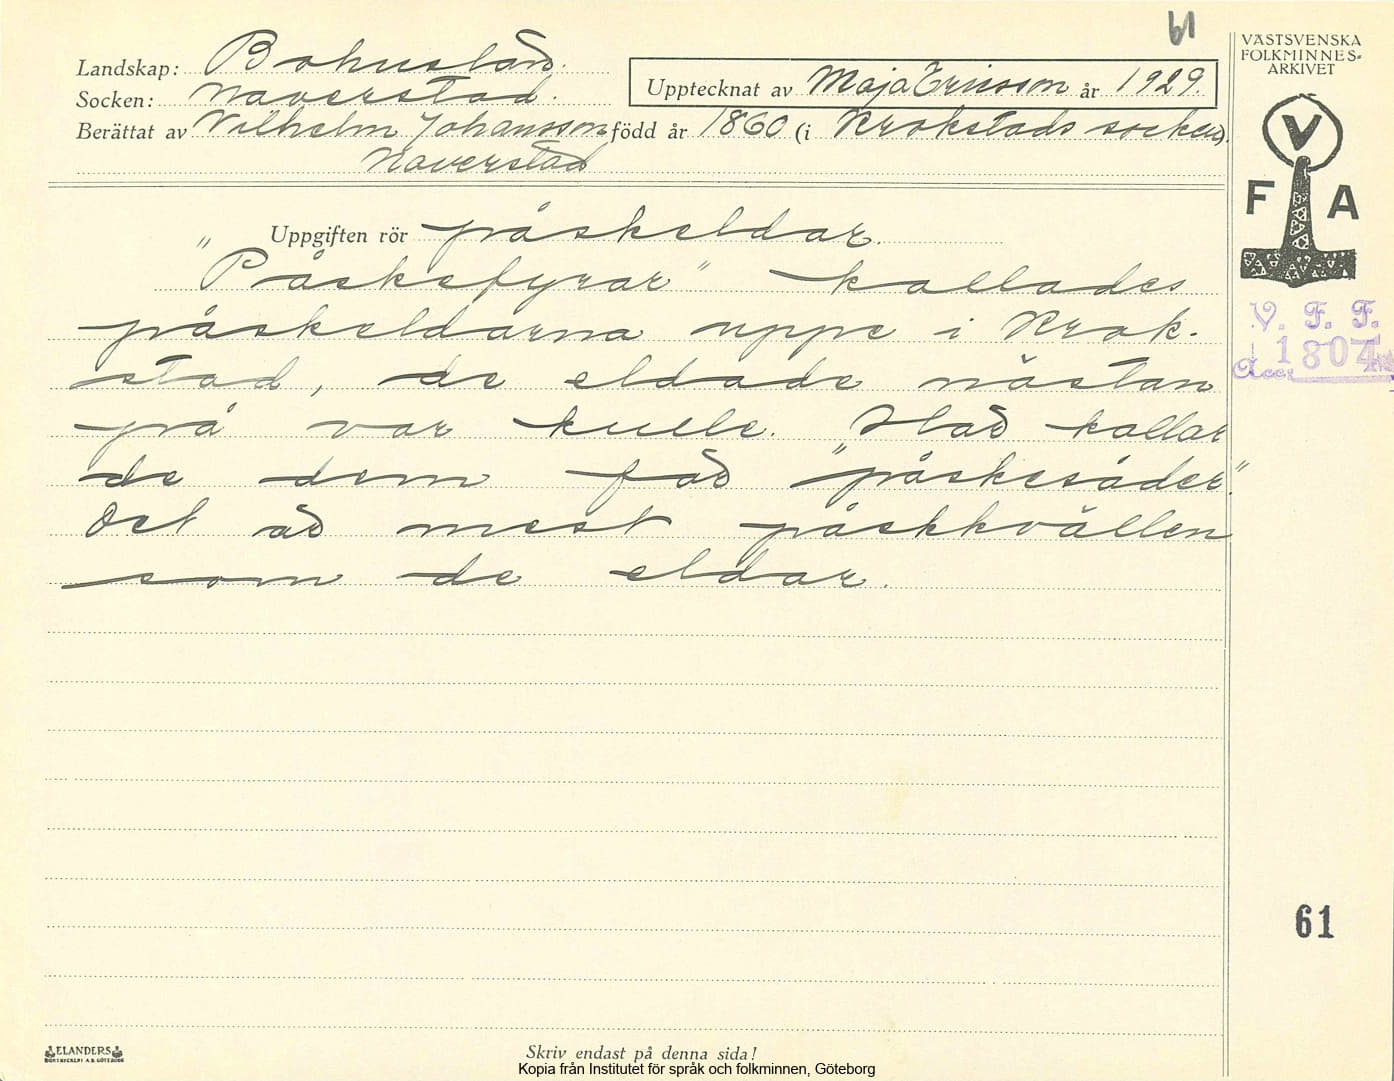 61
VÄSTSVENSKA
FOLKMINNES-
ARKIVET
Landskap: Bohuslän.
Socken: Naverstad.
Upptecknat av Maja Ericsson år 1929.
Berättat av Vilhelm Johansson född år 1860 (i Krokstads socken).
Naverstad
V
F A
V. F. F.
Acc. 1804
Uppgiften rör påskeldar.
"Påskefyrar" kallades
påskeldarna uppe i Krok-
stad, de eldade nästan
på var kulle. Här kallar
de dem för "påskesåder."
Det är mest påskkvällen
som de eldar.
61
ELANDERS
BOKTRYCKERI A.B. GÖTEBORG
Skriv endast på denna sida!
Kopia från Institutet för språk och folkminnen, Göteborg